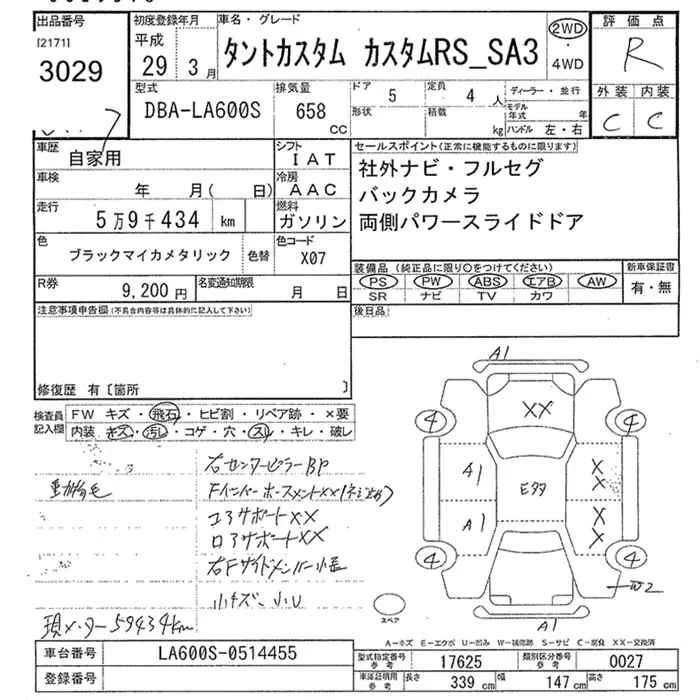 出品番号
[2171]
3029
初度登録年月
平成
29 3月
車名・グレード
タントカスタム カスタムRS_SA3
2WD
・
4WD
評価点
R
外装 内装
C C
型式
DBA-LA600S
排気量
658
cc
ドア
5
定員
4
人
形状
積載
kg
ディーラー・並行
モデル年式 年
ハンドル 左・右
車歴
自家用
シフト
IAT
車検
年 月( 日)
冷房
AAC
走行
5万9千434 km
燃料
ガソリン
色
ブラックマイカメタリック
色替
色コード
X07
R券
9,200円
名変通知期限
月 日
セールスポイント(正常に機能するものに限ります)
社外ナビ・フルセグ
バックカメラ
両側パワースライドドア
装備品 (純正品に限り○をつけてください)
PS PW ABS エアB AW
SR ナビ TV カワ
新車保証書
有・無
後日品
注意事項申告欄(不具合内容等は具体的に記入して下さい)
修復歴 有〔箇所 〕
検査員
記入欄
FW キズ・飛石・ヒビ割・リペア跡・×要
内装 キズ・汚し・コゲ・穴・スレ・キレ・破し
右センターピラーBP
コアサポートXX
ロアサポートXX
小キズ、小U
現メーター59434km
A1
4 4
XX
A1 X
X
A1 X
X
4 4
W2
A1
スペア
A-キズ E-エクボ U-凹み W-補修跡 S-サビ C-腐食 XX-交換済
車台番号
LA600S-0514455
登録番号
型式指定番号
参考
17625
類別区分番号
参考
0027
車庫証明用
参考
長さ 339 cm
幅 147 cm
高さ 175 cm